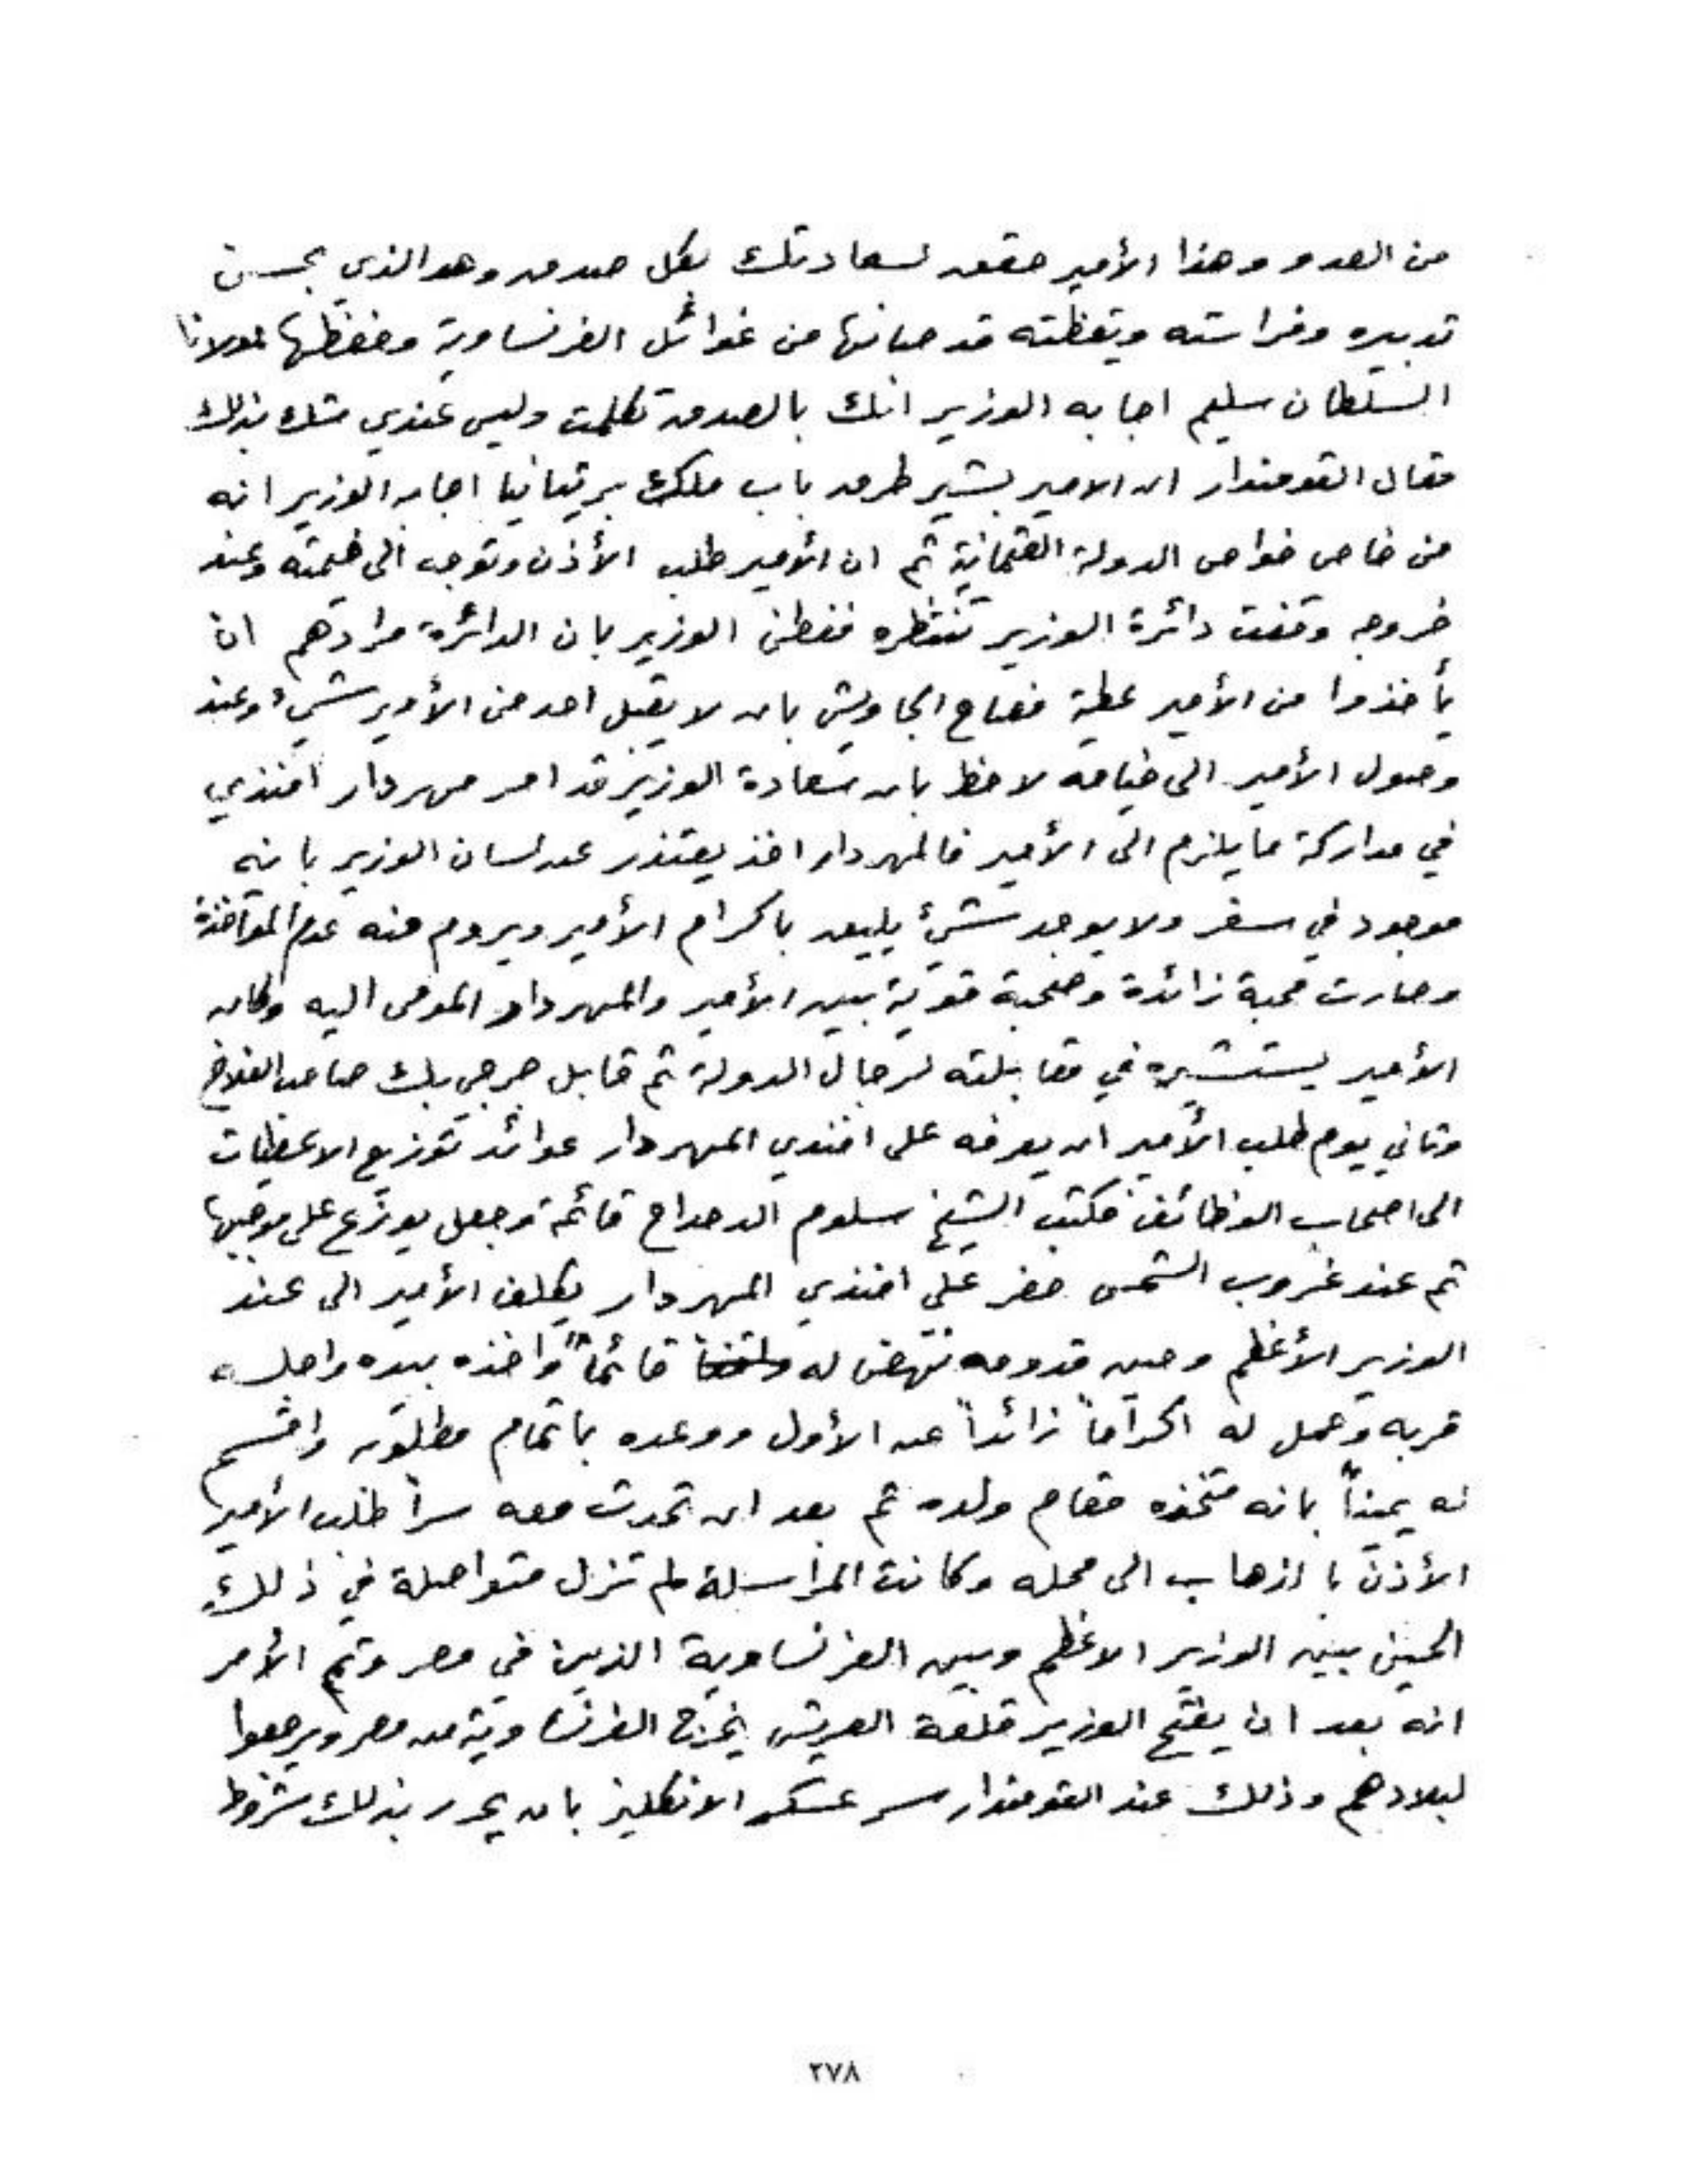 من العدو وهذا الأمير حقق لسعادتك بكل صدق وهو الذي بحسن
تدبيره وفراسته ويقظته قد صانها من غوائل الفرنساوية وحفظها لمولانا
السلطان سليم اجابه الوزير انك بالصدق تكلمت وليس عندي شك بذلك
فقال القومندار ان الامير بشير طرف باب ملك بريتانيا اجابه الوزير انه
من خاص خواص الدولة العثمانية ثم ان الأمير طلب الأذن وتوجه الى خيمته وعند
خروجه وقفت دائرة الوزير تنتظره ففطن الوزير بان الدائرة مرادهم ان
يأخذوا من الأمير عطية فصاح الجاويش بان لا يقبل احد من الأمير شيء وعند
وصول الأمير الى خيامه لاحظ بان سعادة الوزير قد امر مهردار افندي
في مداركة ما يلزم الى الأمير فالمهردار اخذ يعتذر عن لسان الوزير بانه
موجود في سفر ولا يوجد شيء يليق باكرام الأمير ويروم منه عدم المؤاخذة
وصارت محبة زائدة وصحبة قوية بين الأمير والمهردار المومى اليه وكان
الأمير يستشيره في مقابلته لرجال الدولة ثم قابل جرجي بك صاحب الفلاخ
وثاني يوم طلب الأمير ان يعرفه على افندي المهردار عوائد توزيع الاعطيات
الى اصحاب الوظائف فكتب الشيخ سلوم الدحداح قائمة وجعل يوزع على موجبها
ثم عند غروب الشمس حضر علي افندي المهردار يكلف الأمير الى عند
الوزير الأعظم وحين قدومه نهض له قائماً واخذه بيده واجلسه
قربه وعمل له اكراماً زائداً عن الأول ووعده باتمام مطلوبه واقسم
له يميناً بانه متخذه مقام ولده ثم بعد ان تحدث معه سراً طلب الأمير
الأذن بالذهاب الى محله وكانت المراسلة لم تزل متواصلة في ذلك
الحين بين الوزير الاعظم وبين الفرنساوية الذين في مصر وتم الأمر
انه بعد ان يفتح الوزير قلعة العريش يخرج الفرنساوية من مصر ويرجعوا
لبلادهم وذلك عند القومندار سر عسكر الانكليز بان يحرر بذلك شروط
٢٧٨